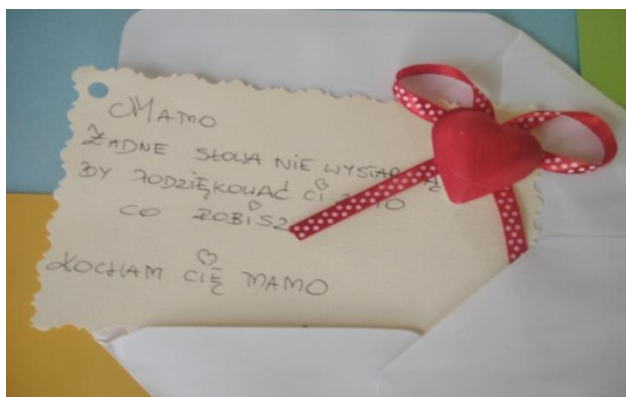 MAMO
ŻADNE SŁOWA NIE
BY PODZIĘKOWAĆ Ci
CO ROBiSZ
KOCHAM CIĘ MAMO